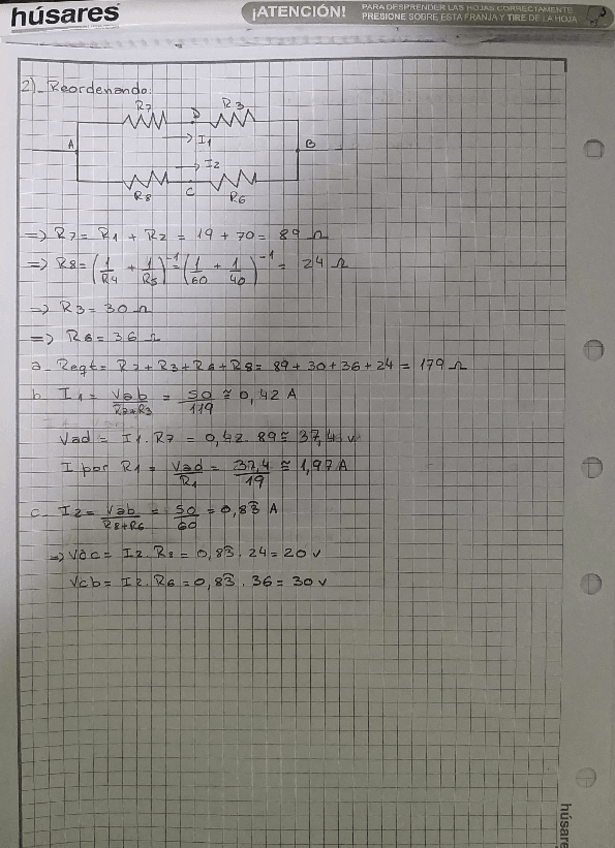 húsares
¡ATENCIÓN!
PARA DESPRENDER LAS HOJAS CORRECTAMENTE
PRESIONE SOBRE ESTA FRANJA Y TIRE DE LA HOJA
2)_ Reordenando:
R7 D R3
A I1 B
I2
R8 C R6
=> R7 = R1 + R2 = 19 + 70 = 89 Ω
=> R8 = (1/R4 + 1/R5)^-1 = (1/60 + 1/40)^-1 = 24 Ω
=> R3 = 30 Ω
=> R6 = 36 Ω
a_ Reqt = R7 + R3 + R6 + R8 = 89 + 30 + 36 + 24 = 179 Ω
b_ I1 = Vab/R7+R3 = 50/119 ≅ 0,42 A
Vad = I1 . R7 = 0,42 . 89 ≅ 37,4 v
I por R1 = Vad/R1 = 37,4/19 ≅ 1,97 A
c_ I2 = Vab/R8+R6 = 50/60 = 0,83 A
=> Vac = I2 . R8 = 0,83 . 24 = 20 v
Vcb = I2 . R6 = 0,83 . 36 = 30 v
húsare